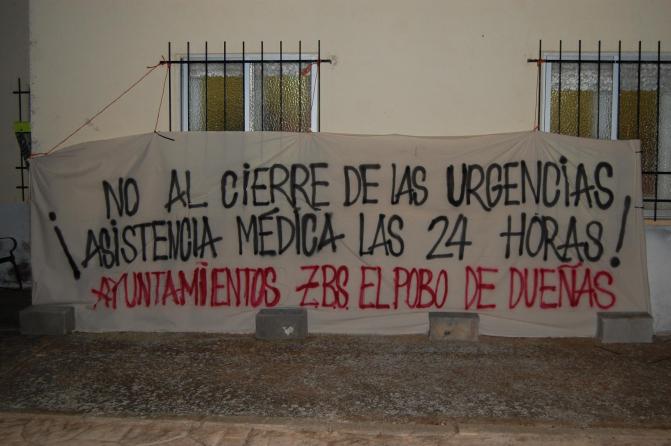 NO AL CIERRE DE LAS URGENCIAS
¡ASISTENCIA MÉDICA LAS 24 HORAS!
AYUNTAMIENTOS Z.B.S. EL POBO DE DUEÑAS